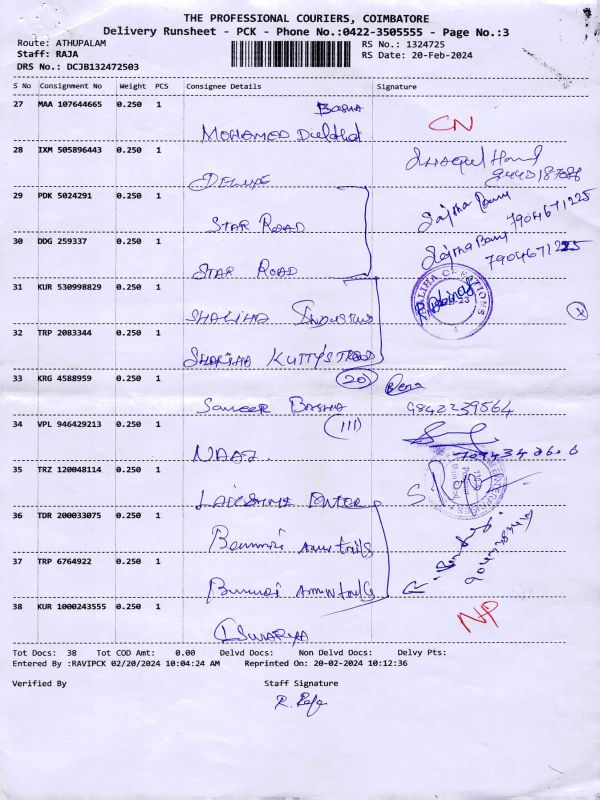 THE PROFESSIONAL COURIERS, COIMBATORE
Delivery Runsheet - PCK - Phone No.:0422-3505555 - Page No.:3
Route: ATHUPALAM
RS No.: 1324725
Staff: RAJA
RS Date: 20-Feb-2024
DRS No.: DCJB132472503
S No Consignment No Weight PCS Consignee Details Signature
27 MAA 107644665 0.250 1 Basha
MOHAMED CN
28 IXM 505896443 0.250 1
DELUXE
29 PDK 5024291 0.250 1
STAR ROAD Sajina Banu 7904671225
30 DDG 259337 0.250 1
STAR ROAD Sajina Banu 7904671225
31 KUR 530998829 0.250 1
SHALIHA
32 TRP 2083344 0.250 1
KUTTYS
33 KRG 4588959 0.250 1 (20)
SAMEER BASHA 9842239564
34 VPL 946429213 0.250 1 (111)
NAAZ.
35 TRZ 120048114 0.250 1
LAKSHMI ENTER
36 TDR 200033075 0.250 1
37 TRP 6764922 0.250 1
38 KUR 1000243555 0.250 1
ISWARYA NP
Tot Docs: 38 Tot COD Amt: 0.00 Delvd Docs: Non Delvd Docs: Delvy Pts:
Entered By :RAVIPCK 02/20/2024 10:04:24 AM Reprinted On: 20-02-2024 10:12:36
Verified By Staff Signature